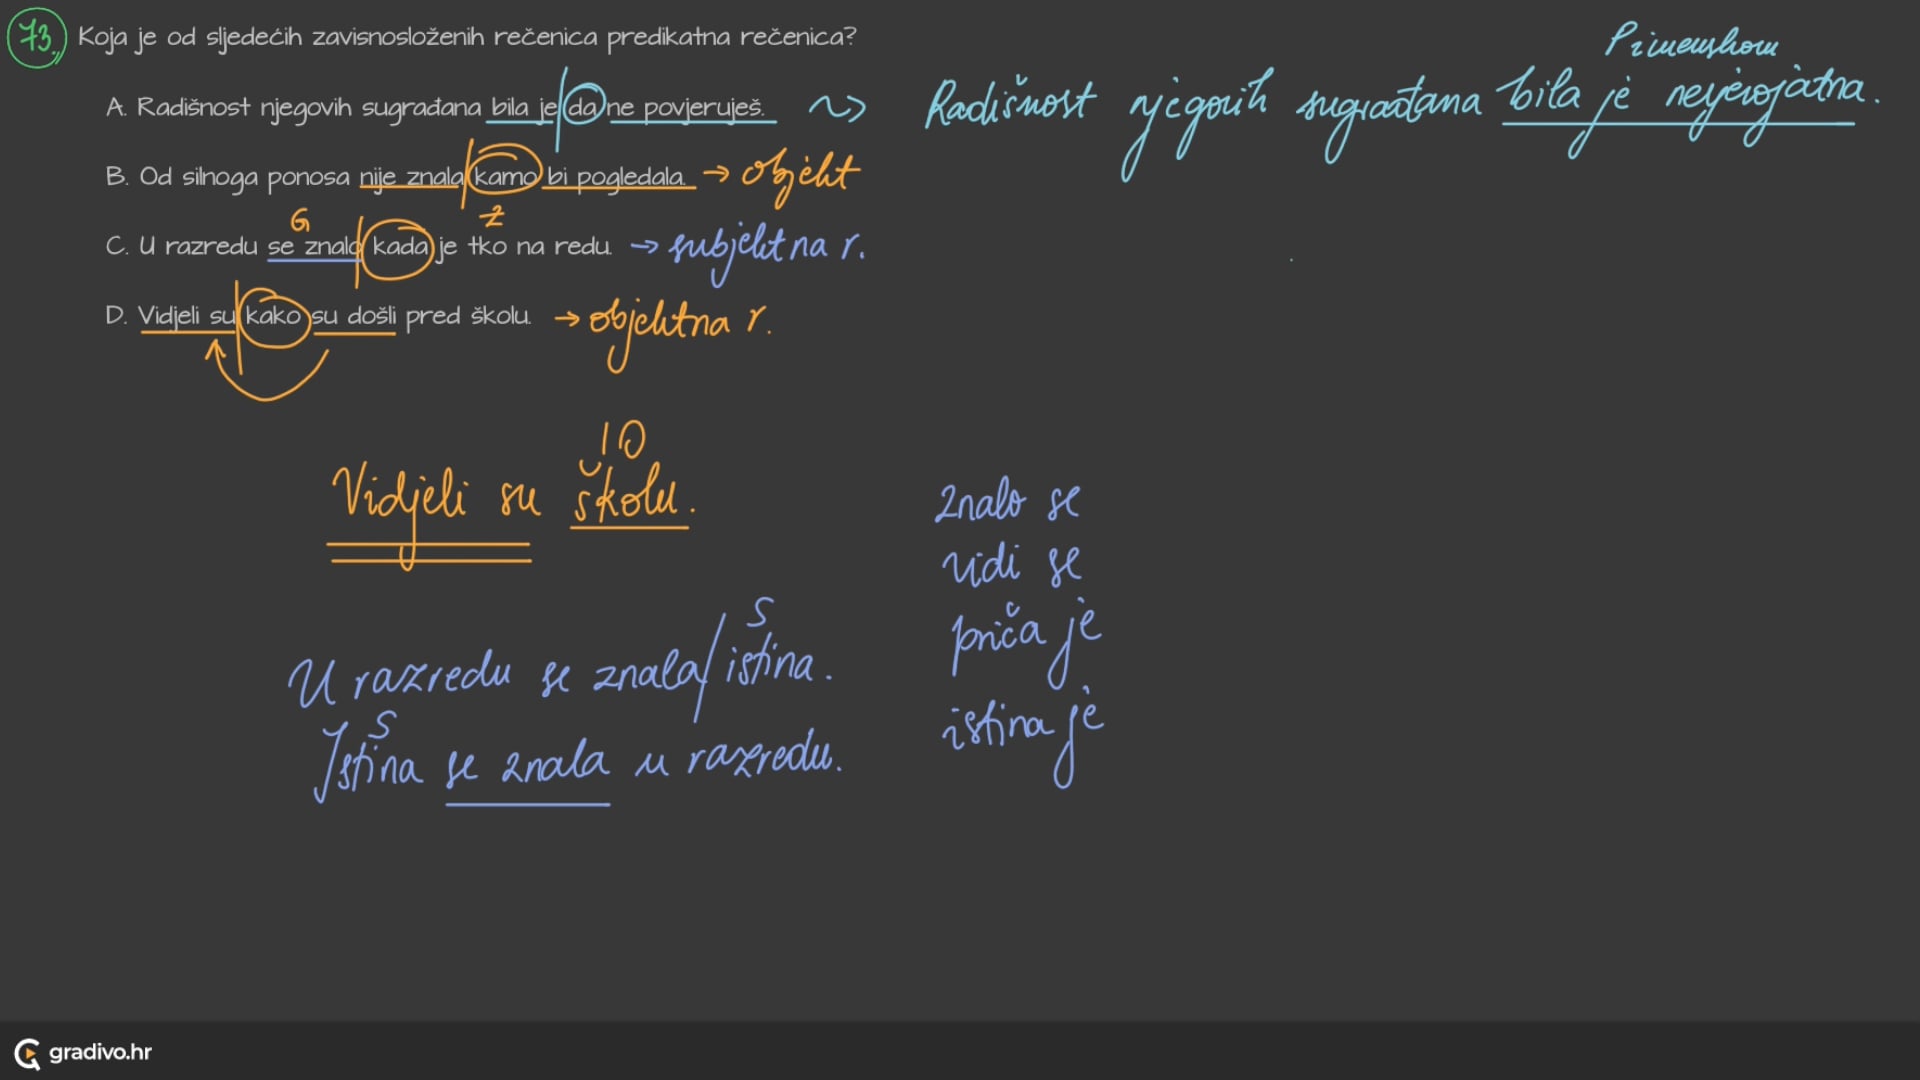 73. Koja je od sljedećih zavisnosloženih rečenica predikatna rečenica?
Primenskom
A. Radišnost njegovih sugrađana bila je da ne povjeruješ. ~> Radišnost njegovih sugrađana bila je nevjerojatna.
B. Od silnoga ponosa nije znala kamo bi pogledala. → objekt
G Z
C. U razredu se znalo kada je tko na redu. → subjektna r.
D. Vidjeli su kako su došli pred školu. → objektna r.
IO
Vidjeli su školu.
znalo se
vidi se
priča je
istina je
S
U razredu se znala / istina.
S
Istina se znala u razredu.
gradivo.hr